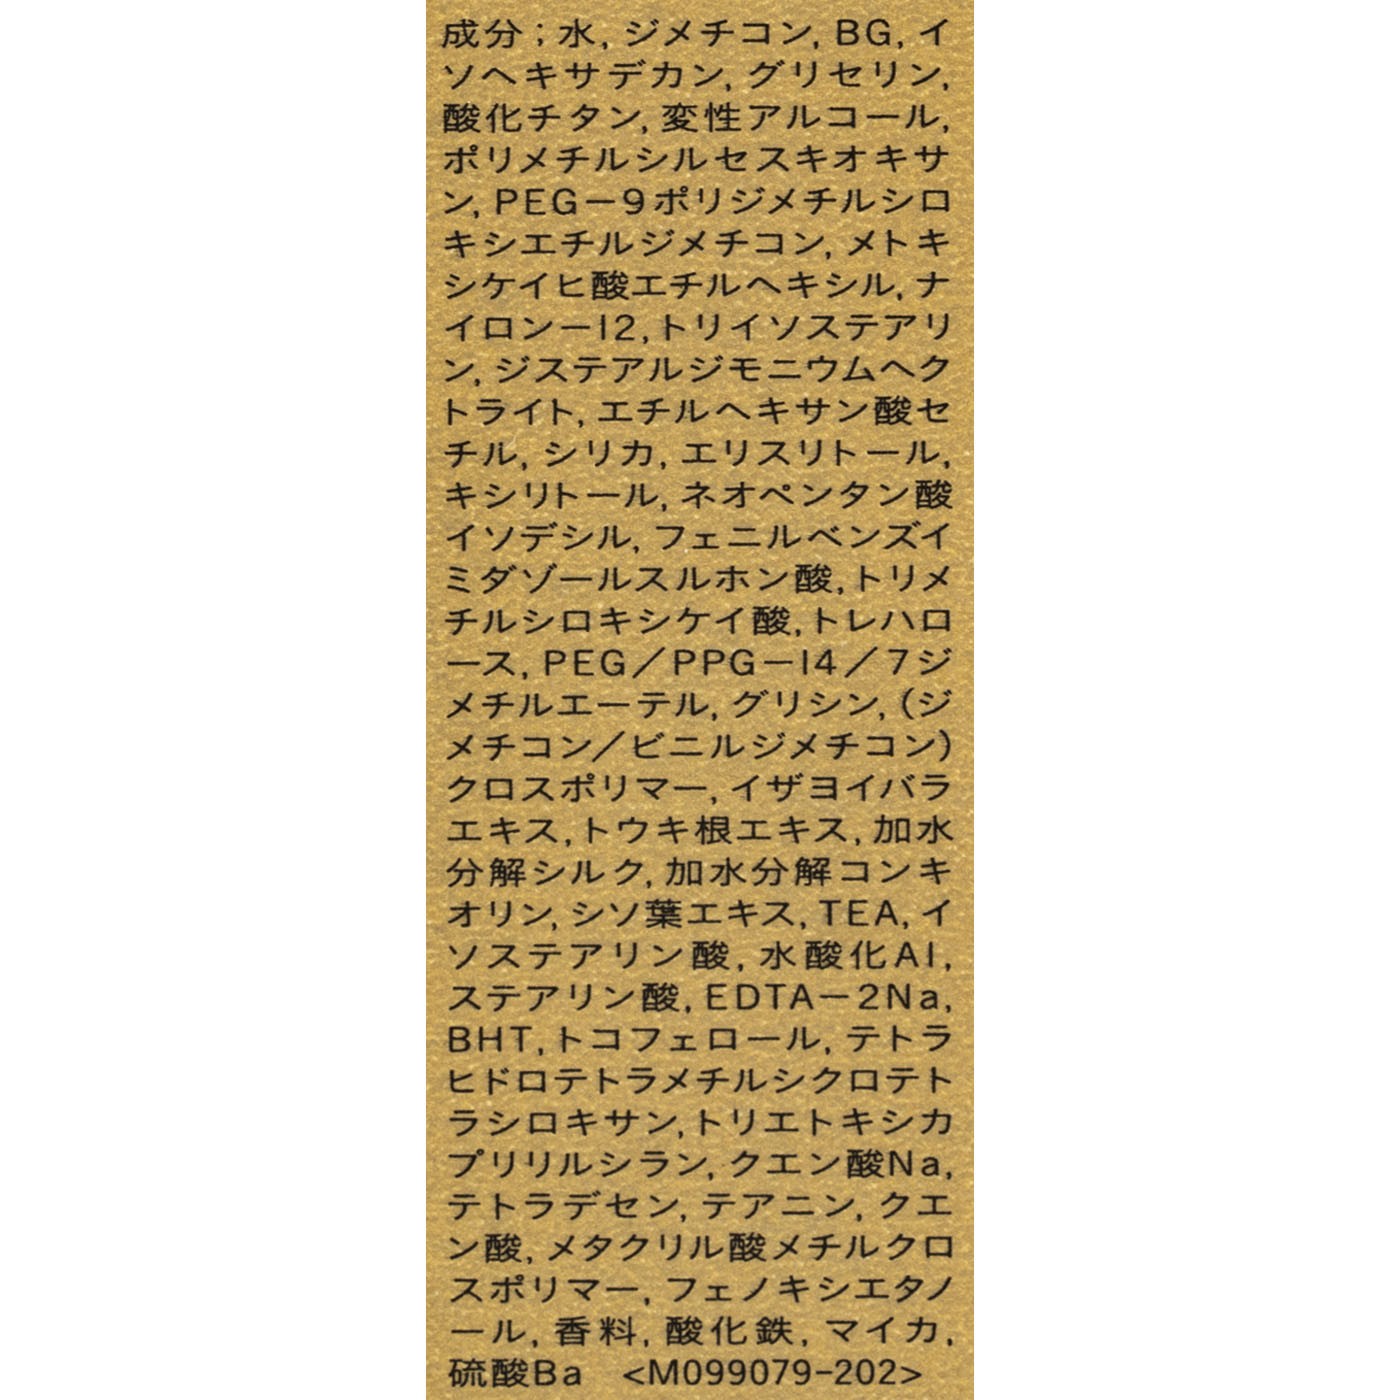 成分；水, ジメチコン, BG, イ
ソヘキサデカン, グリセリン,
酸化チタン, 変性アルコール,
ポリメチルシルセスキオキサ
ン, PEG－9ポリジメチルシロ
キシエチルジメチコン, メトキ
シケイヒ酸エチルヘキシル, ナ
イロン－12, トリイソステアリ
ン, ジステアルジモニウムヘク
トライト, エチルヘキサン酸セ
チル, シリカ, エリスリトール,
キシリトール, ネオペンタン酸
イソデシル, フェニルベンズイ
ミダゾールスルホン酸, トリメ
チルシロキシケイ酸, トレハロ
ース, PEG／PPG－14／7ジ
メチルエーテル, グリシン, (ジ
メチコン／ビニルジメチコン)
クロスポリマー, イザヨイバラ
エキス, トウキ根エキス, 加水
分解シルク, 加水分解コンキ
オリン, シソ葉エキス, TEA, イ
ソステアリン酸, 水酸化Al,
ステアリン酸, EDTA－2Na,
BHT, トコフェロール, テトラ
ヒドロテトラメチルシクロテト
ラシロキサン, トリエトキシカ
プリリルシラン, クエン酸Na,
テトラデセン, テアニン, クエ
ン酸, メタクリル酸メチルクロ
スポリマー, フェノキシエタノ
ール, 香料, 酸化鉄, マイカ,
硫酸Ba　<M099079-202>